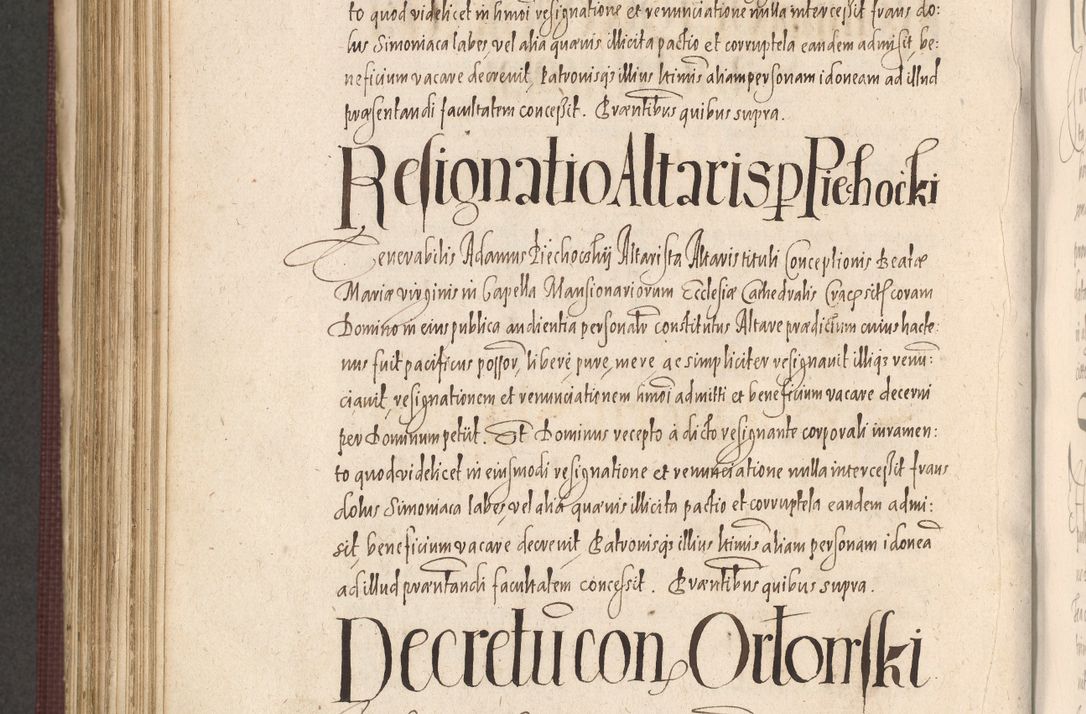 to quod videlicet in hmoi resignatione et renunciatione nulla intercessit fraus do:
lus Simoniaca labes vel alia quævis illicita pactio et corruptela eandem admisit, be:
neficium vacare decrevit, Patronisqȝ illius ltimis aliam personam idoneam ad illud
præsentandi facultatem concessit. Præntibus quibus supra.
Resignatio Altaris p Piechocki
Venerabilis Adamus Piechocskij Altarista Altaris tituli Conceptionis Beatæ
Mariæ virginis in Capella Mansionariorum Ecclesiæ Cathedralis Cracȝ sitȝ coram
Domino in eius publica audientia personalr constitutus Altare prædictum cuius hacte:
nus fuit pacificus possor, liberè pure, mere ac simpliciter resignavit illiqȝ renū:
ciavit, resignationem et renunciationem hmoi admitti et beneficium vacare decerni
per Dominum petiit. Et Dominus recepto à dicto resignante corporali iuramen:
to quod videlicet in eiusmodi resignatione et renunciatione nulla intercessit fraus
dolus Simoniaca labes, vel alia quævis illicita pactio et corruptela eandem admi:
sit, beneficium vacare decrevit, Patronisqȝ illius ltimis aliam personam idoneā
ad illud præntandi facultatem concessit. Præntibus quibus supra.
Decretū con Ortomski